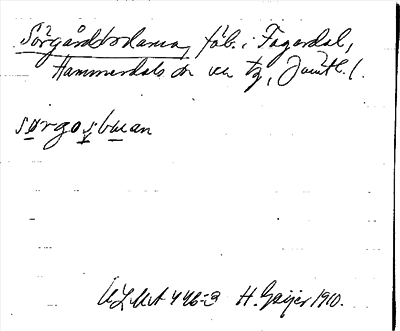 Sörgårdsbodarna, fäb. i Fagerdal,
Hammerdals sn ... tg, Jämtl. l.
sørgosbuan
ULMA 446:3 H. Geijer 1910.